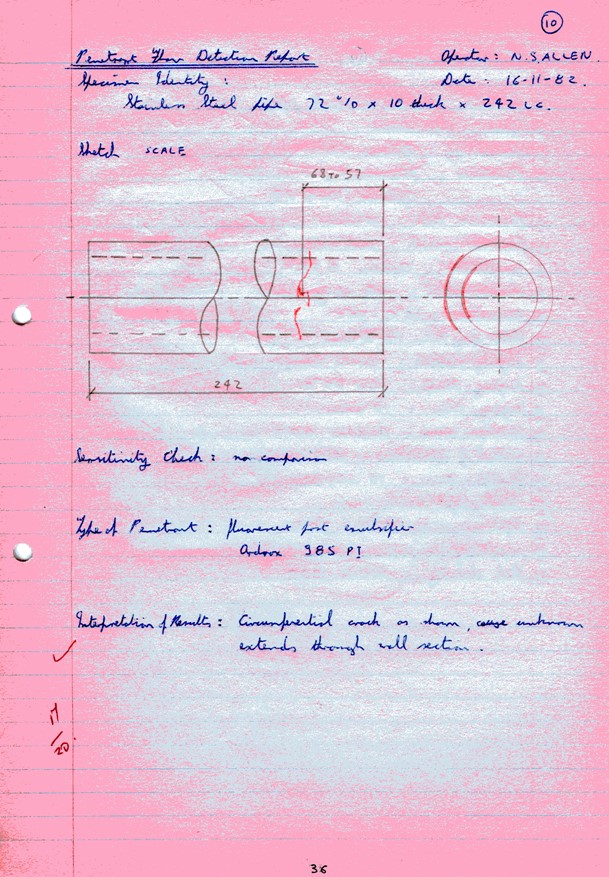 10
Penetrant Flaw Detection Report
Operator: N.S.ALLEN.
Specimen Identity:
Date: 16-11-82.
Stainless Steel pipe 72 o/D x 10 thick x 242 LG.
Sketch SCALE
68 TO 57
242
Sensitivity Check: no comparison
Type of Penetrant: fluorescent post emulsifier
Ardrox 985 PI
Interpretation of Results: Circumferential crack as shown, cause unknown
extends through wall section.
17
20
36